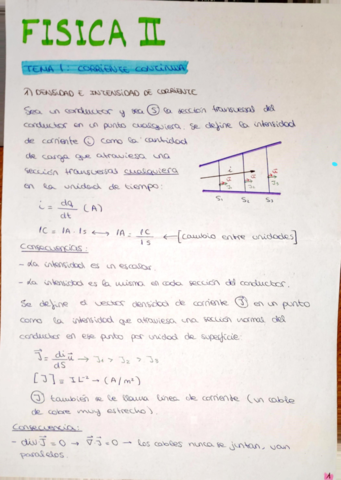 FISICA II
TEMA 1: CORRIENTE CONTINUA
1) DENSIDAD E INTENSIDAD DE CORRIENTE
Sea un conductor y sea (S) la sección transversal del
conductor en un punto cualquiera. Se define la intensidad
de corriente (i) como la cantidad
de carga que atraviesa una
sección transversal cualquiera
en la unidad de tiempo:
i
S₁ S₂ S₃
i = dq/dt (A)
1C = 1A · 1s ⟷ 1A = 1C/1s ⟵ [cambio entre unidades]
Consecuencias:
- La intensidad es un escalar.
- La intensidad es la misma en cada sección del conductor.
Se define el vector densidad de corriente (J) en un punto
como la intensidad que atraviesa una sección normal del
conductor en ese punto por unidad de superficie:
J⃗ = di/dS u⃗ → J₁ > J₂ > J₃
[J] = I L⁻² → (A/m²)
(J) también se le llama línea de corriente (un cable
de cobre muy estrecho).
Consecuencia:
- div J⃗ = 0 → ∇⃗ · J⃗ = 0 → Los cables nunca se juntan, van
paralelos.
1